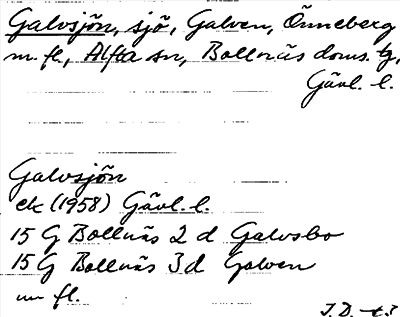 Galvsjön, sjö, Galven, Önneberg
m. fl., Alfta sn, Bollnäs doms. tg,
Gävl. l.
Galvsjön
ek (1958) Gävl. l.
15 G Bollnäs 2 d Galvsbo
15 G Bollnäs 3 d Galven
m fl.
J.D. -t3